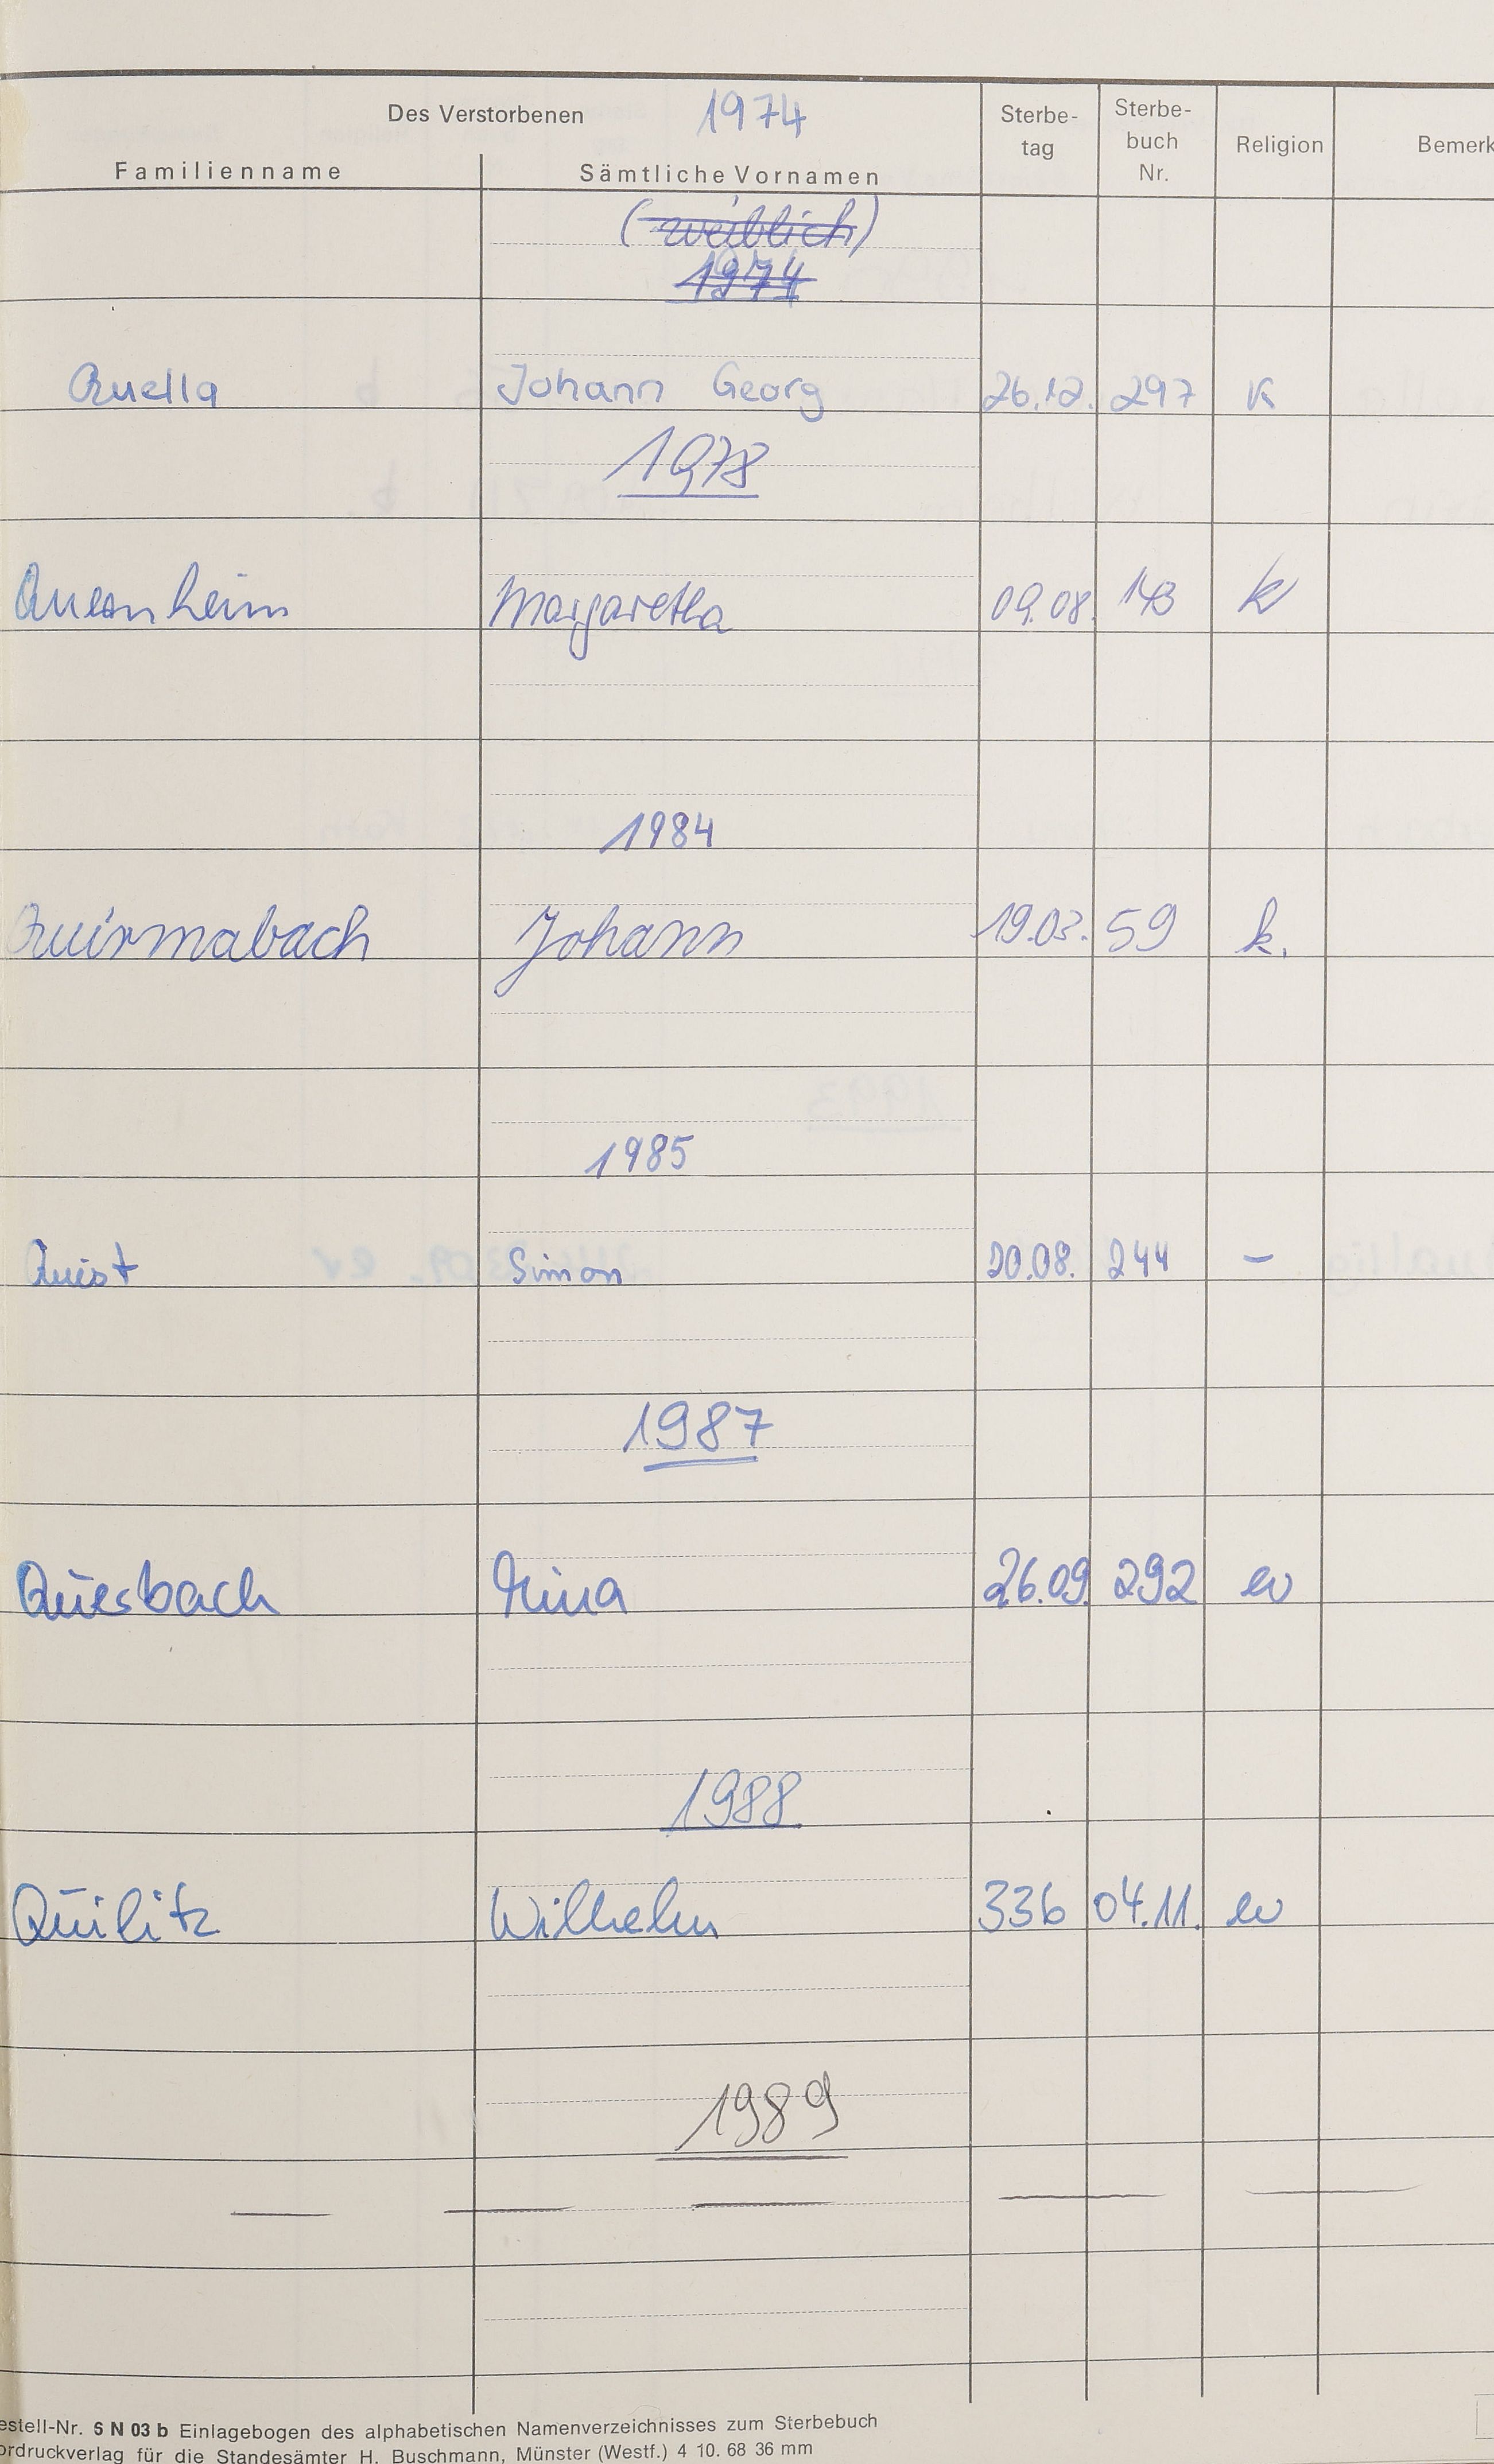 Des Verstorbenen 1974
Familienname Sämtliche Vornamen Sterbe-
tag Sterbe-
buch
Nr. Religion Bemerk
(weiblich)
1974
Quella Johann Georg 26.12. 297 K
1978
Margaretha 09.08. k
1984
Quirmabach Johann 19.03. 59 k.
1985
Quist Simon 20.08. 244 –
1987
Quesbach Nina 26.09. 292 ev
1988
Quilitz Wilhelm 336 04.11. ev
1989
— — — — —
estell-Nr. S N 03 b Einlagebogen des alphabetischen Namenverzeichnisses zum Sterbebuch
ordruckverlag für die Standesämter H. Buschmann, Münster (Westf.) 4 10. 68 36 mm